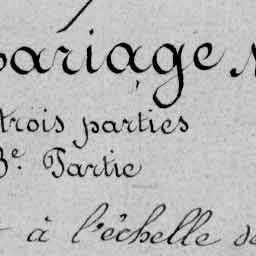 mariage
trois parties
3e. Partie
à l'échelle de